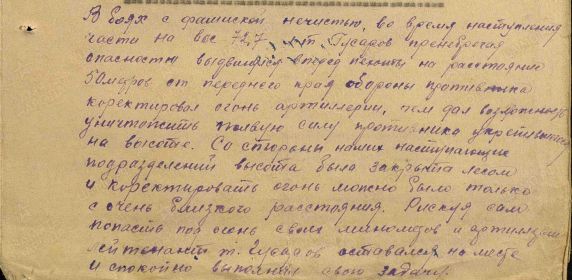 В боях с фашисской нечистью, во время наступления
части на выс 72,7 л-т Гусаров пренебрегая
опасностью выдвинулся вперед пехоты на расстояние
50 метров от переднего края обороны противника
коректировал огонь артиллерии, чем дал возможность
уничтожить живую силу противника укрепившегося
на высоте. Со стороны наших наступающих
подразделений высота была закрыта лесом
и коректировать огонь можно было только
с очень близкого расстояния. Рискуя сам
попасть под огонь своих минометов и артиллерии
лейтенант т. Гусаров оставался на месте
и спокойно выполнял свою задачу.